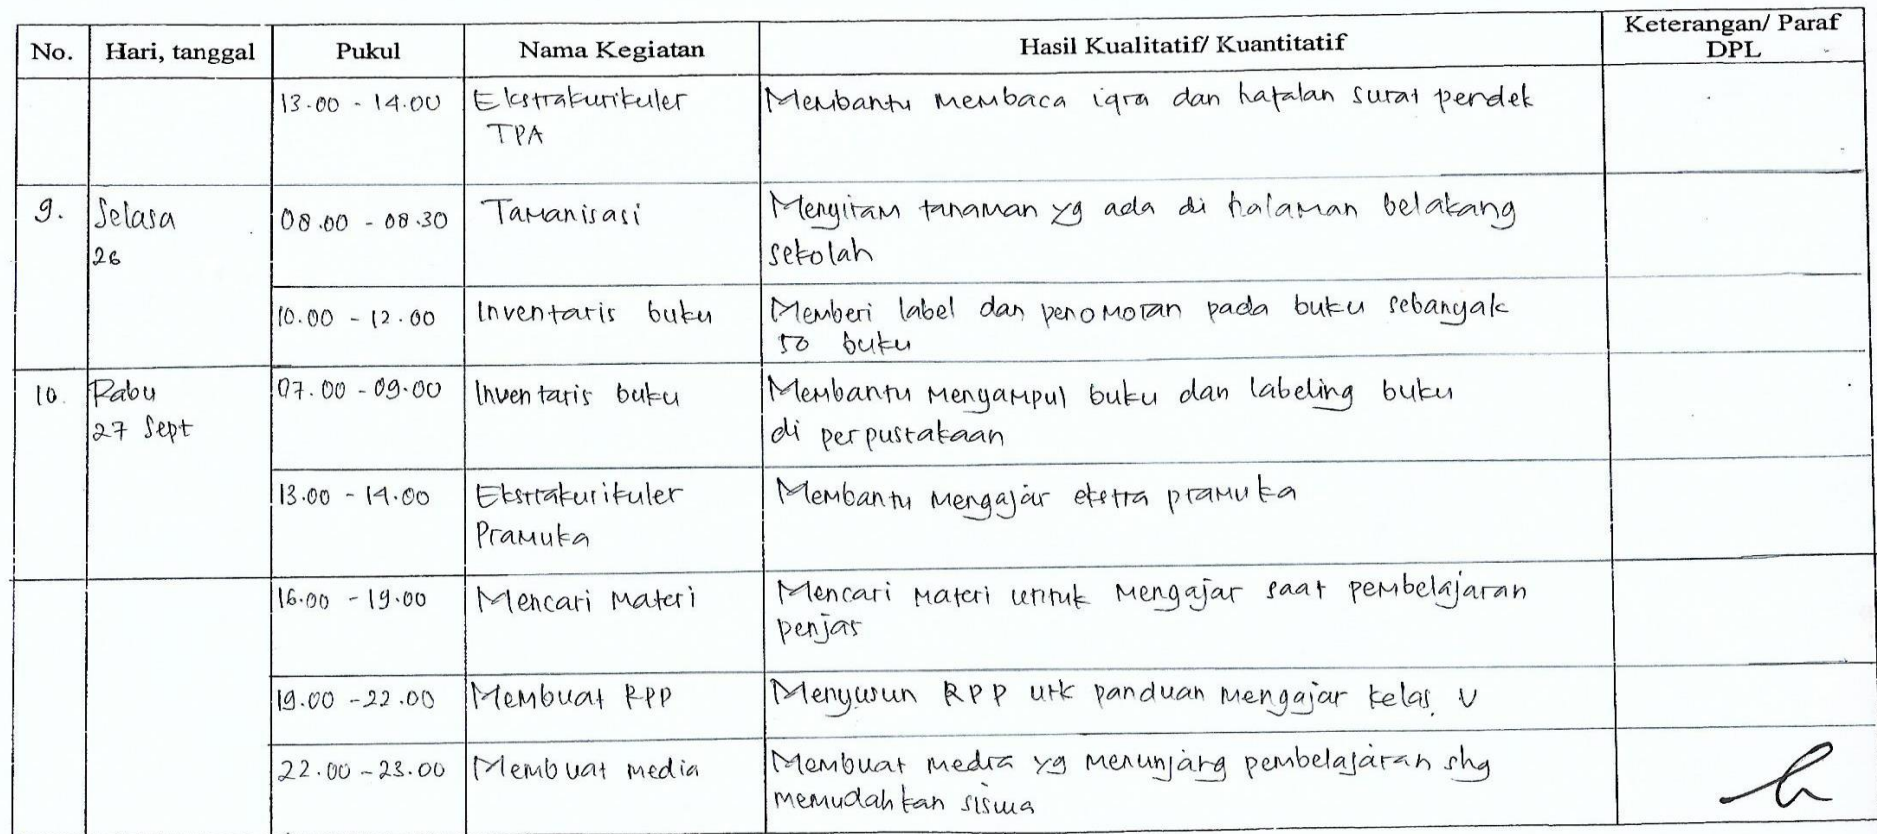 No. Hari, tanggal Pukul Nama Kegiatan Hasil Kualitatif/ Kuantitatif Keterangan/ Paraf DPL
13.00 - 14.00 Ekstrakurikuler TPA Membantu membaca iqra dan hafalan surat pendek
9. Selasa 26 08.00 - 08.30 Tamanisasi Menyiram tanaman yg ada di halaman belakang
sekolah
10.00 - 12.00 Inventaris buku Memberi label dan penomoran pada buku sebanyak
50 buku
10. Rabu 27 Sept 07.00 - 09.00 Inventaris buku Membantu menyampul buku dan labeling buku
di perpustakaan
13.00 - 14.00 Ekstrakurikuler Pramuka Membantu mengajar ekstra pramuka
16.00 - 19.00 Mencari materi Mencari materi untuk mengajar saat pembelajaran
penjas
19.00 - 22.00 Membuat RPP Menyusun RPP utk panduan mengajar kelas V
22.00 - 23.00 Membuat media Membuat media yg menunjang pembelajaran shg
memudahkan siswa